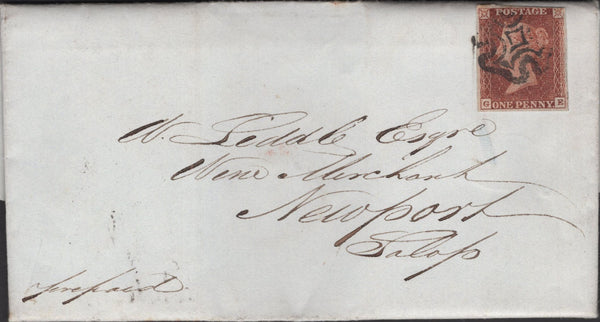 POSTAGE
G E
ONE PENNY
W. Liddle Esqre
Wine Merchant
Newport
Salop
prepaid